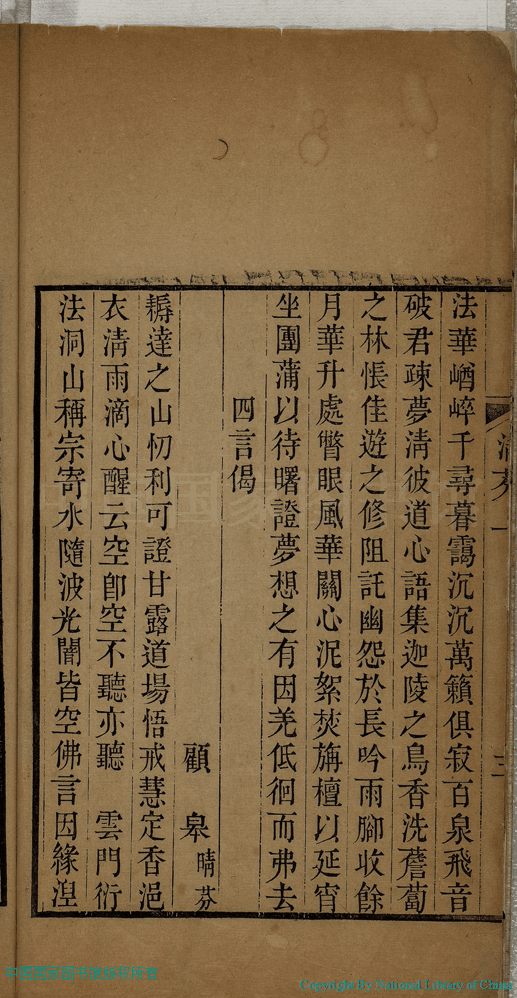 法華崷崪千尋暮靄沉沉萬籟俱寂百泉飛音
破君疎夢淸彼道心語集迦陵之鳥香洗薝蔔
之林悵佳遊之修阻託幽怨於長吟雨腳收餘
月華升處瞥眼風華關心泥絮焚旃檀以延宵
坐團蒲以待曙證夢想之有因羌低徊而弗去
四言偈
顧皋 晴芬
耨達之山忉利可證甘露道場悟戒慧定香浥
衣淸雨滴心醒云空卽空不聽亦聽 雲門衍
法洞山稱宗寄水隨波光闇皆空佛言因緣湼
三
Copyright By National Library of China